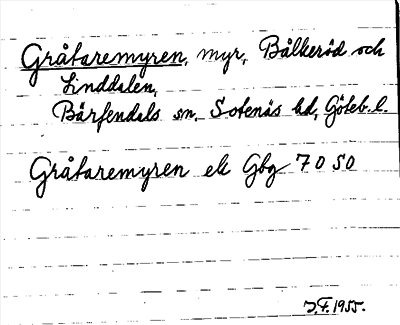 Gråtaremyren, myr, Bålkeröd och
Linddalen,
Bärfendals sn. Sotenäs hd, Göteb. l.
Gråtaremyren ek Gbg 7050
J.F. 1955.